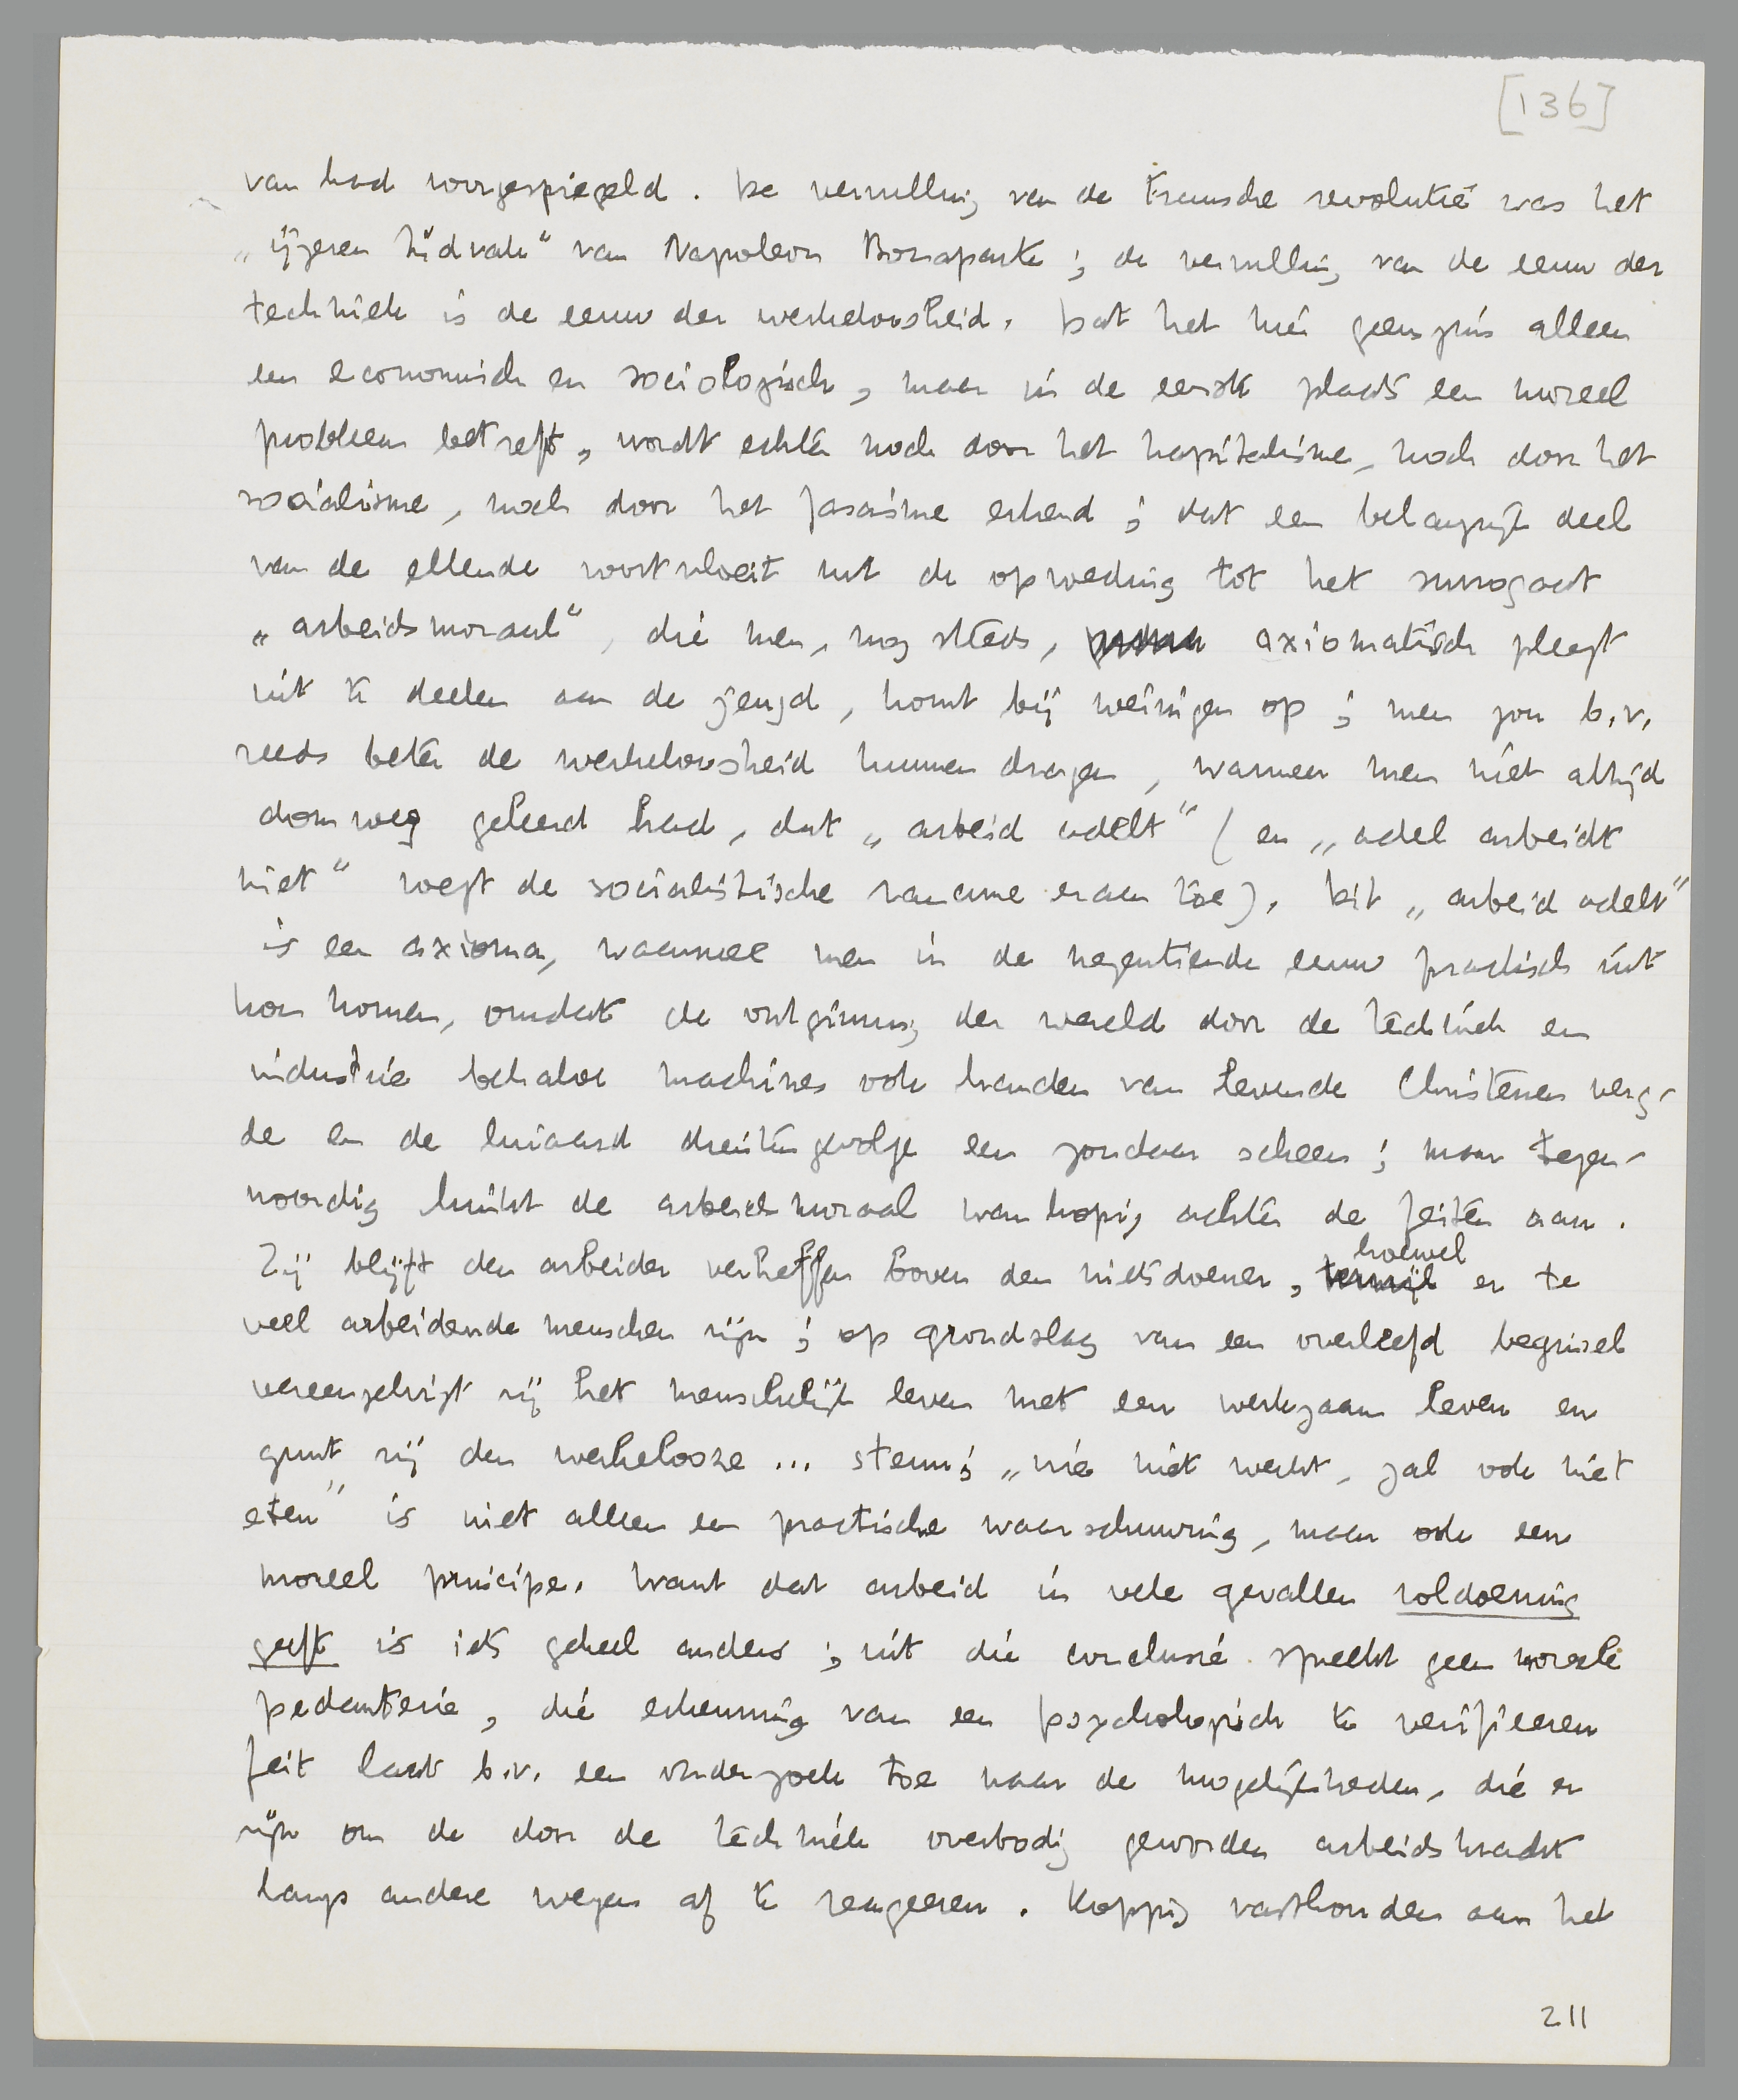 [136]
van had voorgespiegeld. De vervulling van de Fransche revolutie was het
„ijzeren tijdvak" van Napoleon Bonaparte; de vervulling van de eeuw der
techniek is de eeuw der werkeloosheid. Dat het hier geenszins alleen
een economisch en sociologisch, maar in de eerste plaats een moreel
probleem betreft, wordt echter noch door het kapitalisme, noch door het
socialisme, noch door het fascisme erkend; dat een belangrijk deel
van de ellende voortvloeit uit de opvoeding tot het surrogaat
„arbeidsmoraal", die men, nog steeds, axiomatisch pleegt
uit te deelen aan de jeugd, komt bij weinigen op; men zou b.v.
reeds beter de werkeloosheid kunnen dragen, wanneer men niet altijd
domweg geleerd had, dat „arbeid adelt" (en „adel arbeidt
niet" voegt de socialistische rancune eraan toe). Dit „arbeid adelt"
is een axioma, waarmee men in de negentiende eeuw practisch uit
kon komen, omdat de ontginning der wereld door de techniek en
industrie behalve machines ook handen van levende Christenen verg-
de en de luiaard dientengevolge een zondaar scheen; maar tegen-
woordig hinkt de arbeidsmoraal wanhopig achter de feiten aan.
Zij blijft den arbeider verheffen boven den nietsdoener, terwijl hoewel er te
veel arbeidende menschen zijn; op grondslag van een overleefd beginsel
vereenzelvigt zij het menschelijk leven met een werkzaam leven en
gunt zij den werkelooze ... steun; „wie niet werkt, zal ook niet
eten" is niet alleen een practische waarschuwing, maar ook een
moreel principe. Want dat arbeid in vele gevallen voldoening
geeft is iets geheel anders; uit die conclusie spreekt geen moreele
pedanterie, die erkenning van een psychologisch te verifieeren
feit laat b.v. een onderzoek toe naar de mogelijkheden, die er
zijn om de door de techniek overbodig geworden arbeidskracht
langs andere wegen af te reageeren. Koppig vasthouden aan het
211